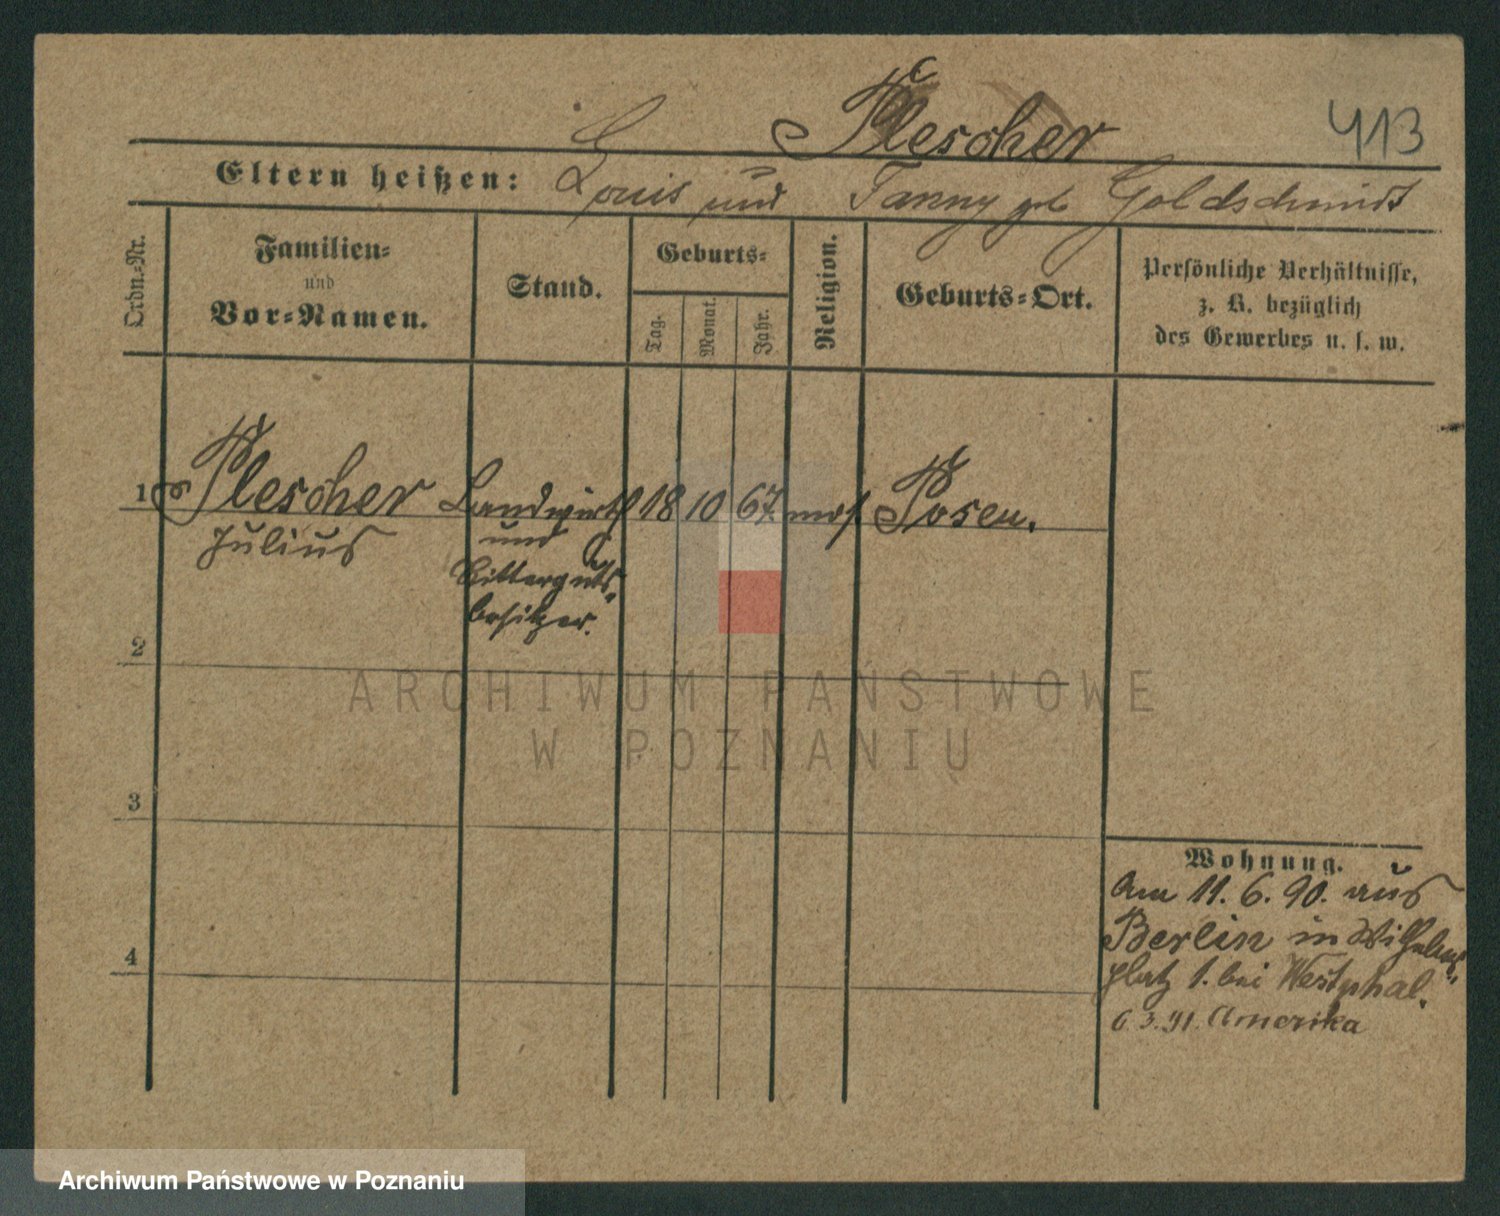 Plescher
413
Eltern heißen: Louis und Fanny geb Goldschmidt
Ordn.-Nr.
Familien-
und
Vor-Namen.
Stand.
Geburts-
Tag.
Monat.
Jahr.
Religion.
Geburts-Ort.
Persönliche Verhältnisse,
z. B. bezüglich
des Gewerbes u. s. w.
1 Plescher Landwirth 18 10 67. mos. Posen.
Julius und
Ritterguts-
besitzer.
2
3
4
Wohnung.
Am 11. 6. 90. aus
Berlin in Wilhelms-
platz 1. bei Westphal.
6 3. 91. Amerika
ARCHIWUM PAŃSTWOWE
W POZNANIU
Archiwum Państwowe w Poznaniu